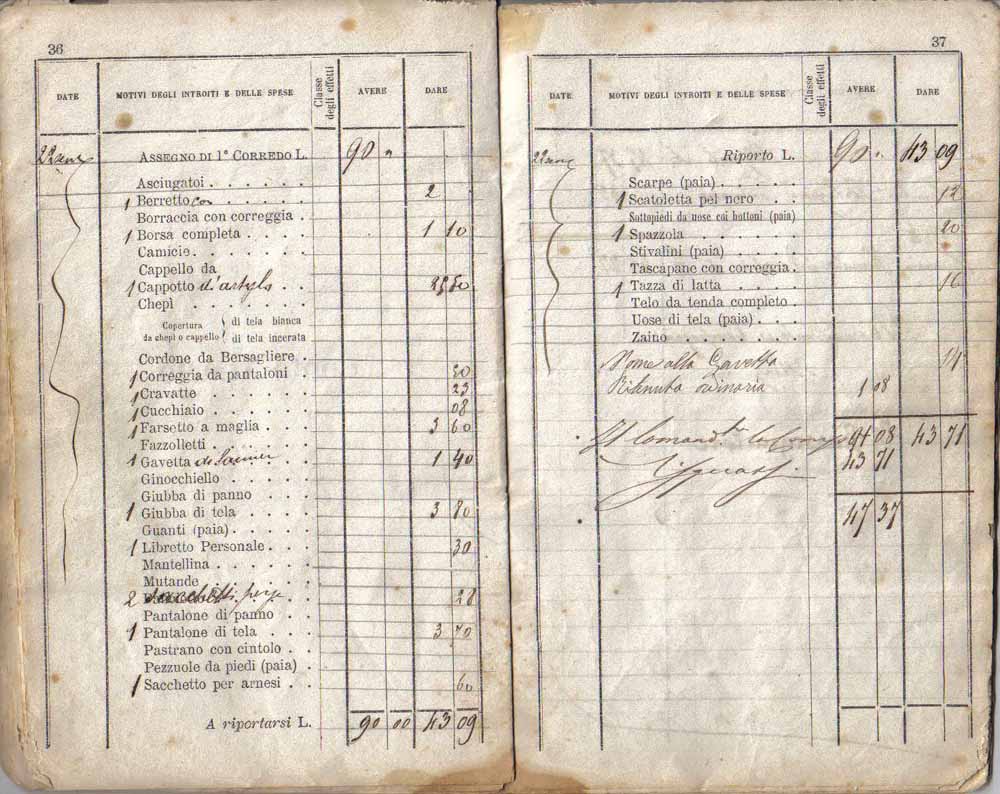 36
DATE MOTIVI DEGLI INTROITI E DELLE SPESE Classe degli effetti AVERE DARE
ASSEGNO DI 1° CORREDO L. 90 "
Asciugatoi . . . . . .
1 Berretto . . . . . 2
Borraccia con correggia .
1 Borsa completa . . . . 1 10
Camicie . . . . . . .
Cappello da
1 Cappotto . .
Chepì . . . . . . .
Copertura da chepì o cappello { di tela bianca
di tela incerata
Cordone da Bersagliere .
1 Correggia da pantaloni .
1 Cravatte . . . . . . 23
1 Cucchiaio . . . . . 08
1 Farsetto a maglia . . . 3 60
Fazzoletti . . . . . .
1 Gavetta . . 1 40
Ginocchiello . . . . .
Giubba di panno . . .
1 Giubba di tela . . . . 3 80
Guanti (paia) . . . . .
1 Libretto Personale . . . 30
Mantellina . . . . . .
Mutande . . . . . .
2 sacchetti 28
Pantalone di panno . .
1 Pantalone di tela . . . 3 70
Pastrano con cintolo . .
Pezzuole da piedi (paia) .
1 Sacchetto per arnesi . . 60
A riportarsi L. 90 00 43 09
37
DATE MOTIVI DEGLI INTROITI E DELLE SPESE Classe degli effetti AVERE DARE
Riporto L. 90 " 43 09
Scarpe (paia) . . . . .
1 Scatoletta pel nero . . . 12
Sottopiedi da uose coi bottoni (paia)
1 Spazzola . . . . . . 20
Stivalini (paia) . . . .
Tascapane con correggia .
1 Tazza di latta . . . . 16
Telo da tenda completo .
Uose di tela (paia) . . .
Zaino . . . . . . .
Nome alla Gavetta 14
Ritenuta ordinaria 1 08
Il Comand.te la Comp 91 08 43 71
43 71
47 37